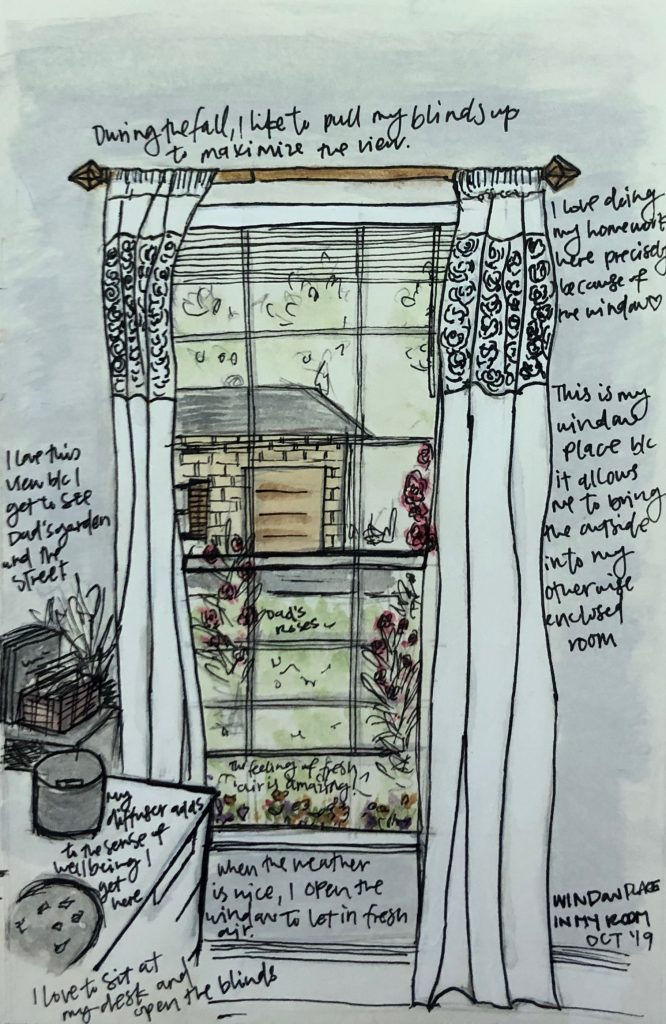 During the fall, I like to pull my blinds up
to maximize the view.
I love doing
my homework
here precisely
because of
the window♡
This is my
window
place b/c
it allows
me to bring
the outside
into my
otherwise
enclosed
room
I love this
view b/c I
get to see
Dad's garden
and the
street
Dad's
roses
The feeling of fresh
air is amazing!
My
diffuser adds
to the sense of
wellbeing I
get
here
when the weather
is nice, I open the
window to let in fresh
air.
I love to sit at
my desk and
open the blinds
WINDOW PLACE
IN MY ROOM
OCT '19